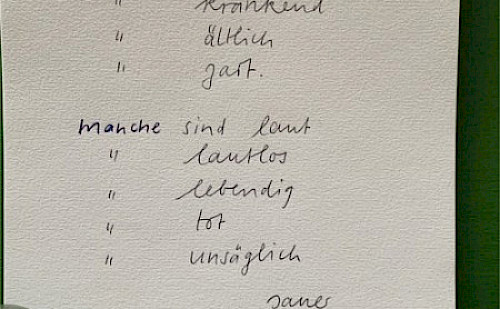 " kränkend
" ältlich
" zart.
manche sind laut
" lautlos
" lebendig
" tot
" unsäglich